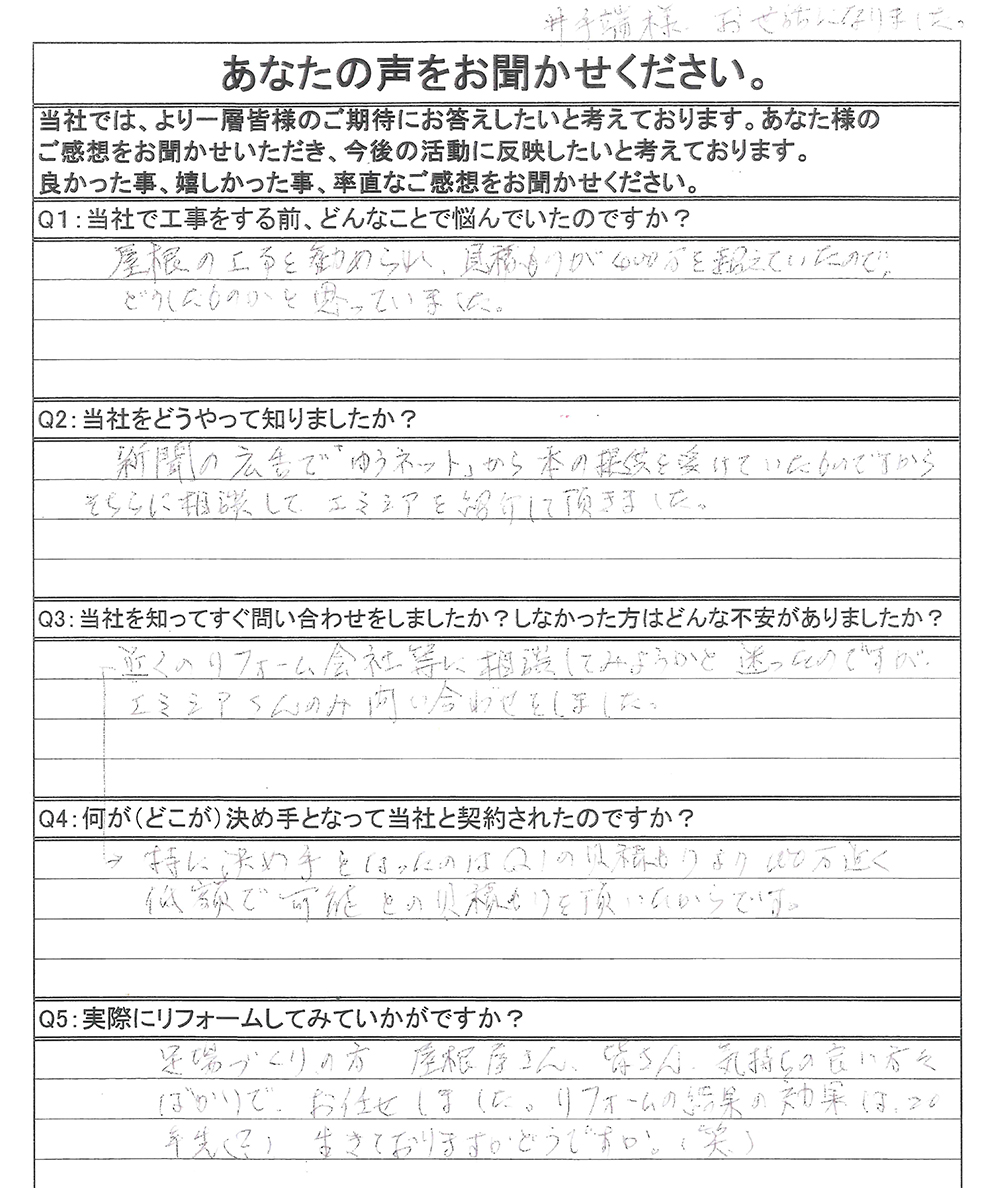 井手端様、お世話になりました。
あなたの声をお聞かせください。
当社では、より一層皆様のご期待にお答えしたいと考えております。あなた様の
ご感想をお聞かせいただき、今後の活動に反映したいと考えております。
良かった事、嬉しかった事、率直なご感想をお聞かせください。
Q1：当社で工事をする前、どんなことで悩んでいたのですか？
屋根の工事を勧められ、見積もりが400万を超えていたので、
どうしたものかと思っていました。
Q2：当社をどうやって知りましたか？
新聞の広告で「ゆうネット」から本の提供を受けていたものですから
そちらに相談して エミシアを紹介して頂きました。
Q3：当社を知ってすぐ問い合わせをしましたか？しなかった方はどんな不安がありましたか？
近くのリフォーム会社等に相談してみようかと迷ったのですが、
エミシアさんのみ問い合わせをしました。
Q4：何が（どこが）決め手となって当社と契約されたのですか？
→ 特に決め手となったのはQ1の見積もりより 万近く
低額で可能との見積もりを頂いたからです。
Q5：実際にリフォームしてみていかがですか？
足場づくりの方 屋根屋さん、皆さん、気持ちの良い方々
ばかりで、お任せしました。リフォームの結果の効果は、20
年先(?) 生きておりますかどうですか。(笑)